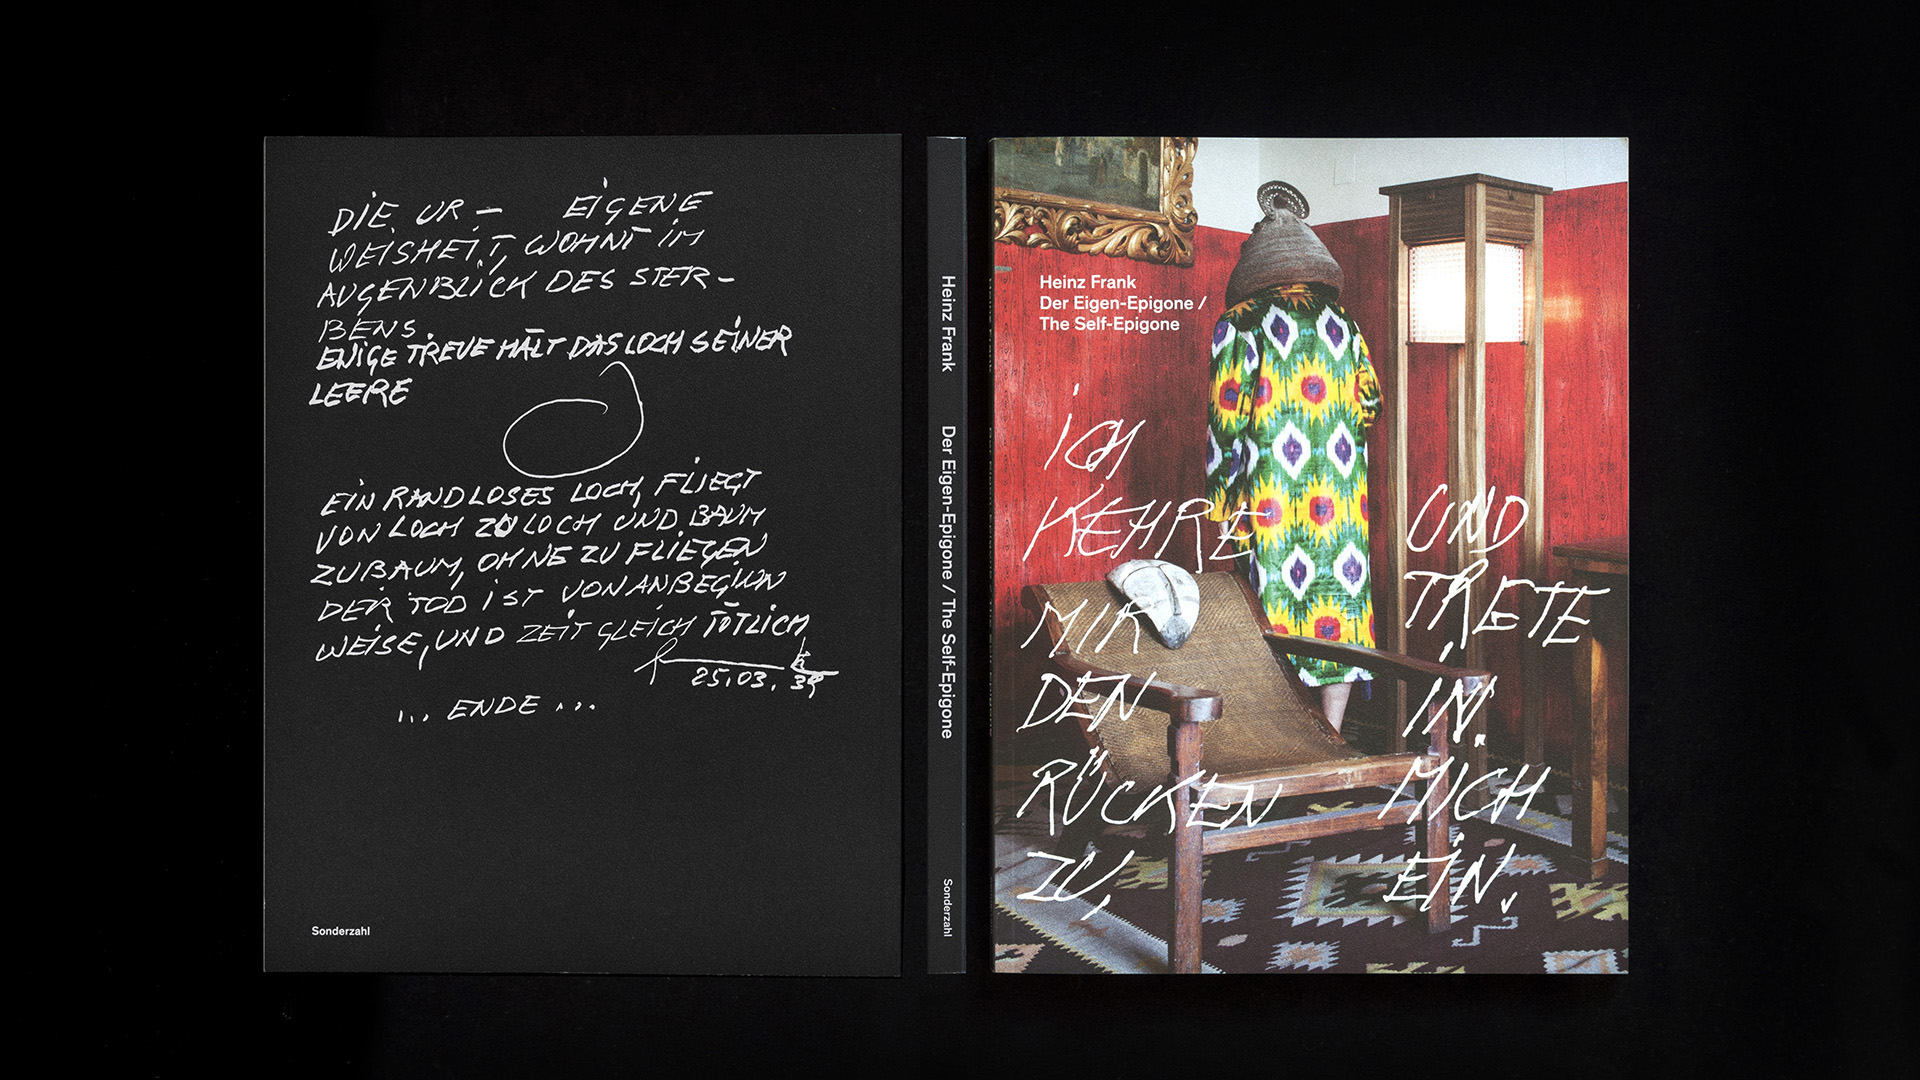 DIE UR – EIGENE
WEISHEIT, WOHNT IM
AUGENBLICK DES STER –
BENS
EWIGE TREUE HÄLT DAS LOCH SEINER
LEERE
EIN RANDLOSES LOCH, FLIEGT
VON LOCH ZU LOCH UND BAUM
ZU BAUM, OHNE ZU FLIEGEN
DER TOD IST VON ANBEGINN
WEISE, UND ZEIT GLEICH TÖTLICH
25.03.39
... ENDE ...
Sonderzahl
Heinz Frank Der Eigen-Epigone / The Self-Epigone Sonderzahl
Heinz Frank
Der Eigen-Epigone /
The Self-Epigone
ICH
KEHRE
MIR
DEN
RÜCKEN
ZU,
UND
TRETE
IN
MICH
EIN.